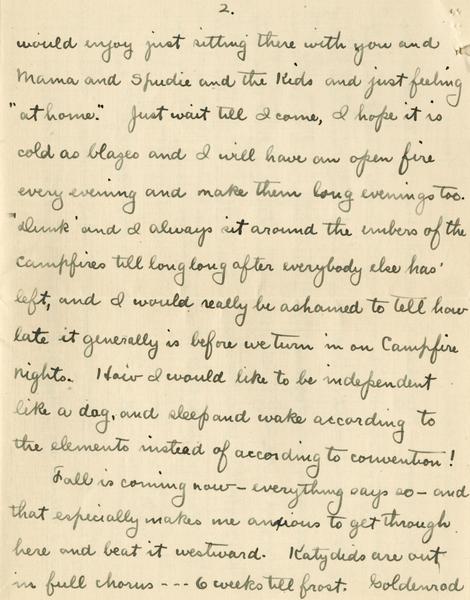 2.
would enjoy just sitting there with you and
Mama and Spudie and the Kids and just feeling
"at home." Just wait till I come, I hope it is
cold as blazes and I will have an open fire
every evening and make them long evenings too.
"Dunk" and I always sit around the embers of the
campfires till long long after everybody else has
left, and I would really be ashamed to tell how
late it generally is before we turn in on Campfire
nights. How I would like to be independent
like a dog, and sleep and wake according to
the elements instead of according to convention!
Fall is coming now - everything says so - and
that especially makes me anxious to get through
here and beat it westward. Katydids are out
in full chorus --- 6 weeks till frost. Goldenrod